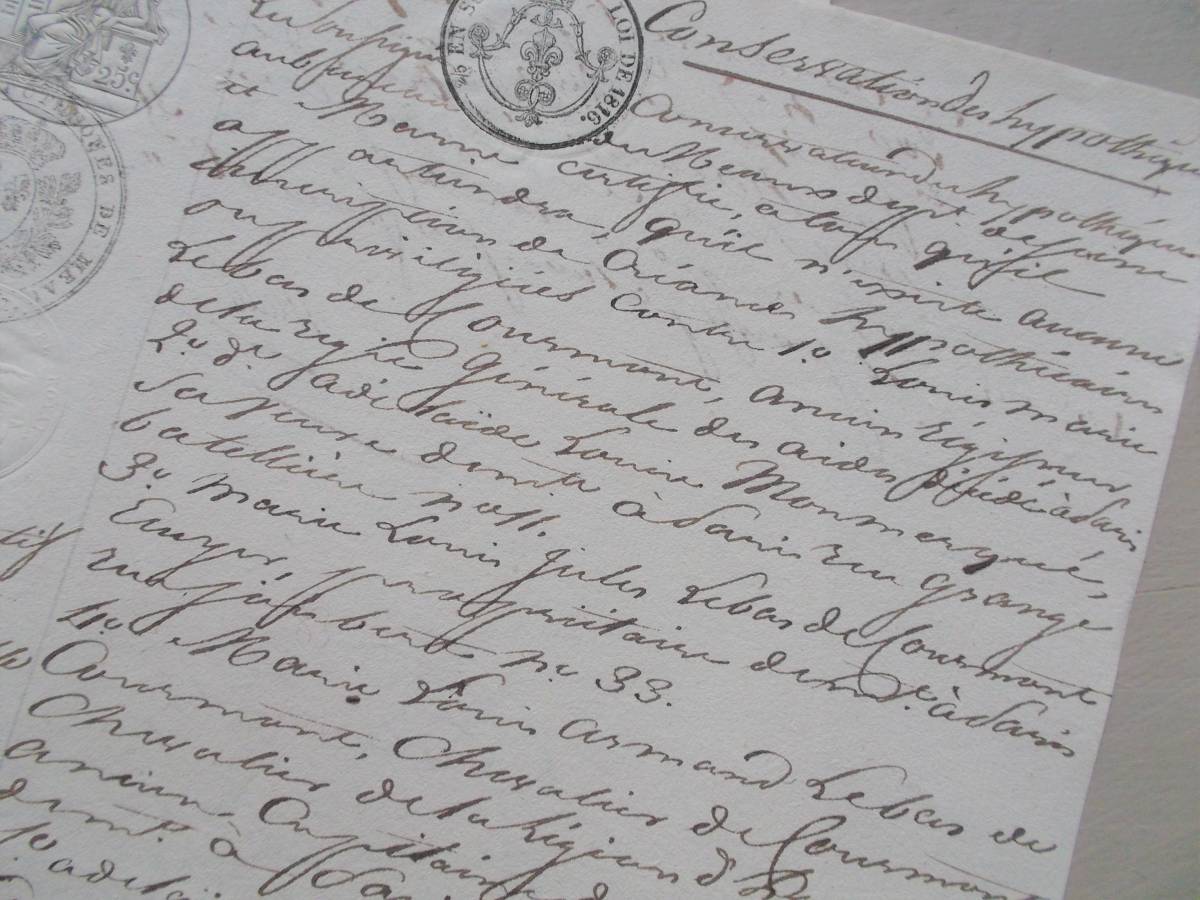 Conservation des hypothèques
Le Soussigné Conservateur des hypothèques
au bureau de Meaux dept. de Seine
et Marne certifie, a tous qu'il
appartiendra, qu'il n'existe aucune
inscription de Créances hypothécaires
ou privilégiées contre 1o. Louis marie
Lebas de Courmont, ancien régisseur
de la régie générale des aides décédé à Paris
2o. De. adélaïde Louise Monmerqué,
Sa veuve demte. à Paris rue grange
batellière no. 11.
3o. marie Louis jules Lebas de Courmont
propriétaire demt. à Paris
rue joubert no. 33.
4o. Marie Louis armand Lebas de
Courmont, Chevalier de Courmont
Chevalier de la Légion d'
ancien Capitaine
demt. à
1o. adélaï
25c.
EN S
LOI DE 1816.
DE MEA